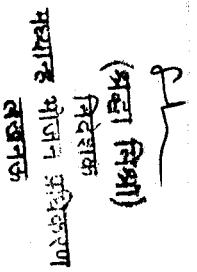 (श्रद्धा मिश्रा)
निदेशक
मध्यान्ह भोजन प्राधिकरण
लखनऊ